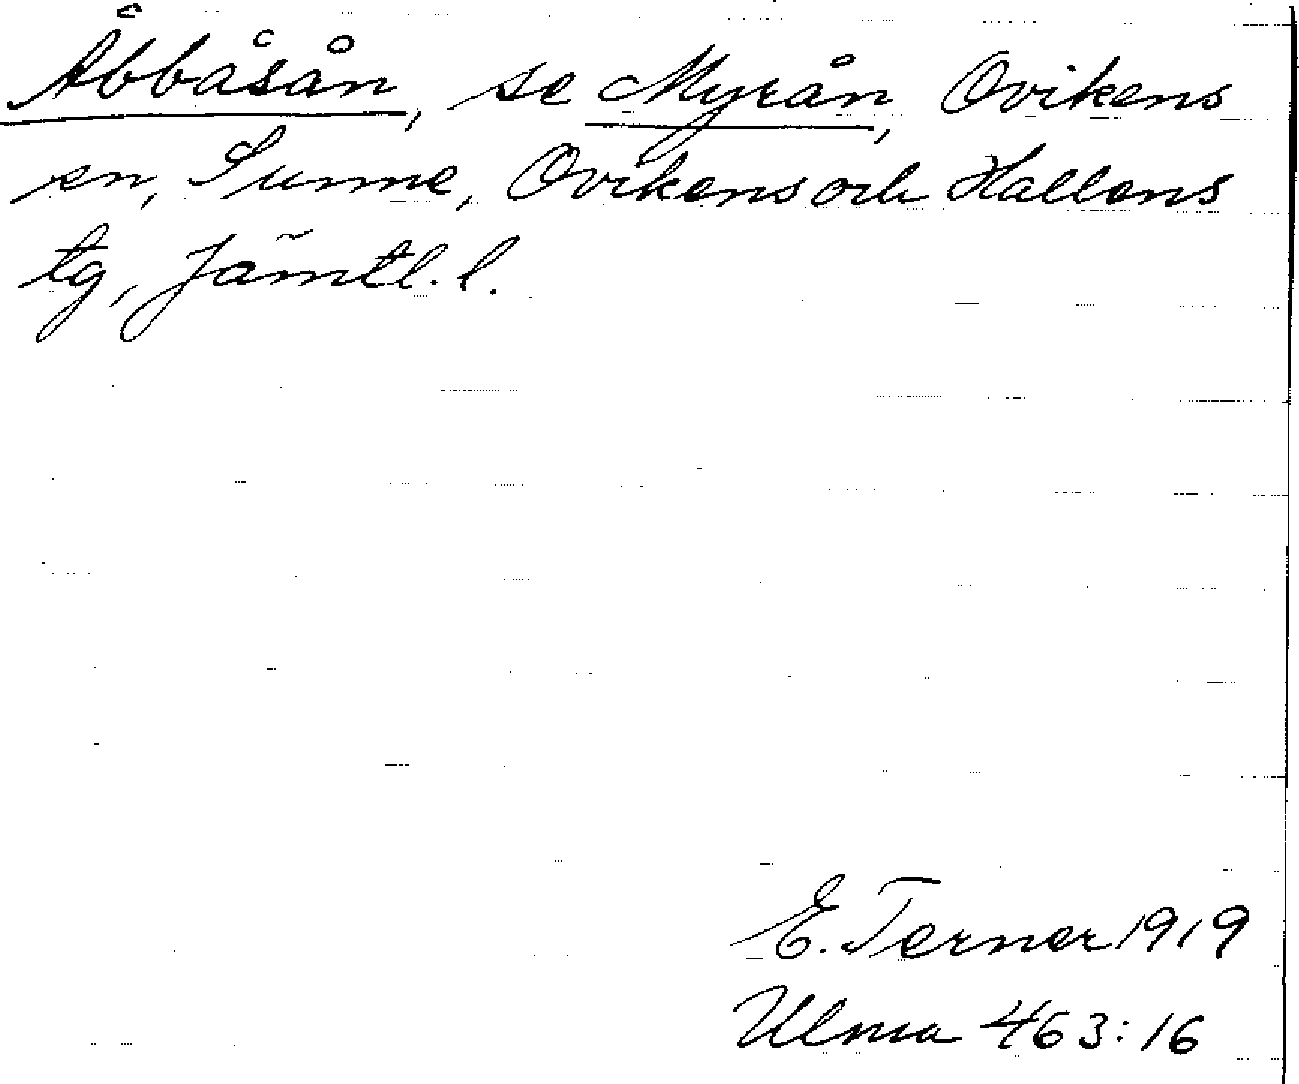 Åbbåsån, se Myrån, Ovikens
sn, Sunne, Ovikens och Hallens
tg, Jämtl. l.
E. Terner 1919
Ulma 463:16